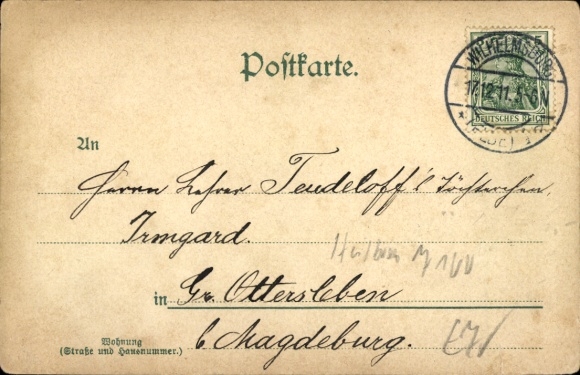 Postkarte.
WILHELMSBURG
17.12.11.
5
DEUTSCHES REICH
An
Herrn Lehrer Teudeloff's Töchterchen,
Irmgard.
in Gr. Ottersleben
b/Magdeburg.
Wohnung
(Straße und Hausnummer.)